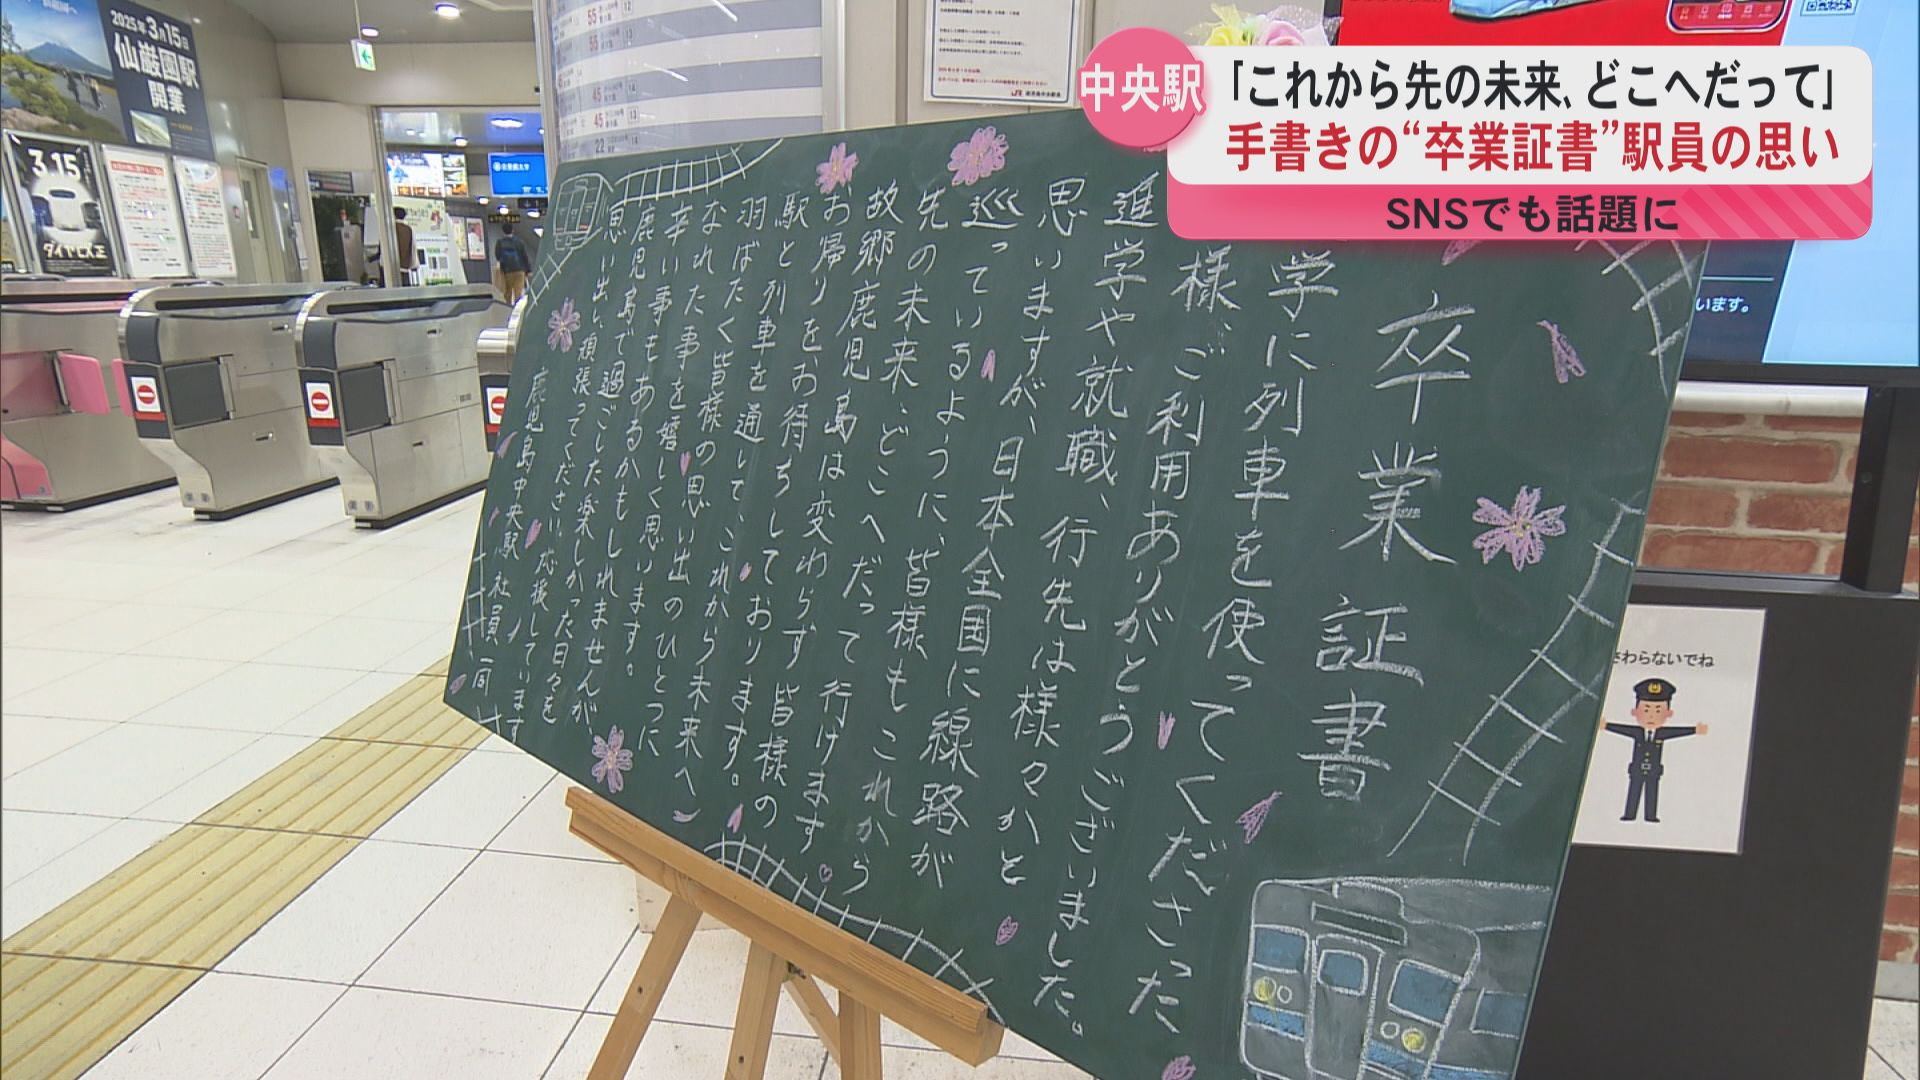 中央駅
「これから先の未来、どこへだって」
手書きの“卒業証書”駅員の思い
SNSでも話題に
卒業証書
学に列車を使ってくださった
様、ご利用ありがとうございました。
進学や就職、行先は様々かと
思いますが、日本全国に線路が
巡っているように、皆様もこれから
先の未来、どこへだって行けます
故郷鹿児島は変わらず皆様の
お帰りを、お待ちしております。
駅と列車を通して、これから未来へ
羽ばたく皆様の思い出のひとつに
なれた事を嬉しく思います。
辛い事もあるかもしれませんが
鹿児島で過ごした楽しかった日々を
思い出い頑張ってください。応援しています
鹿児島中央駅 社員一同
2025年3月15日
仙巌園駅
開業
3.15
ダイヤ改正
さわらないでね
います。
55
55
45
45
22